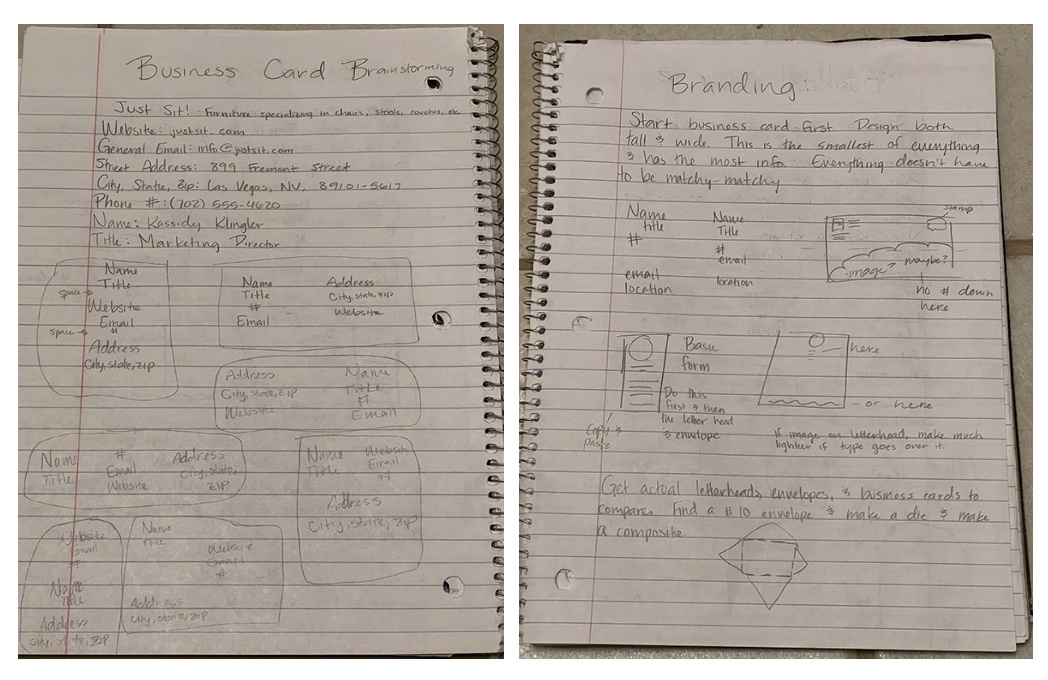 Business Card Brainstorming
Just Sit! Furniture specializing in chairs, stools, couches, etc.
Website: justsit.com
General Email: info@justsit.com
Street Address: 899 Fremont Street
City, State, Zip: Las Vegas, NV. 89101-5617
Phone #: (702) 555-4620
Name: Kassidy Klingler
Title: Marketing Director
Name
Title
space →
Website
Email
space → #
Address
City, state, zip
Name
Title
#
Email
Address
City, state, zip
Website
Address
City, state, zip
Website
Name
Title
#
Email
Name
Title
#
Email
Website
Address
City, state,
zip
Name
Title
Website
Email
#
Address
City, state, zip
Website
Email
#
Name
Title
Address
City, state, zip
Name
Title
Website
Email
#
Address
City, state, zip
Branding:
Start business card first. Design both
tall & wide. This is the smallest of everything
& has the most info. Everything doesn't have
to be matchy-matchy
Name
title
#
email
location
Name
Title
#
email
location
stamp
image?
maybe?
no # down
here
Basic
form
Do this
first & then
the letter head
& envelope
Copy &
paste
here
- or here
if image on letterhead, make much
lighter if type goes over it.
Get actual letterheads, envelopes, & business cards to
compare. Find a #10 envelope & make a die & make
a composite